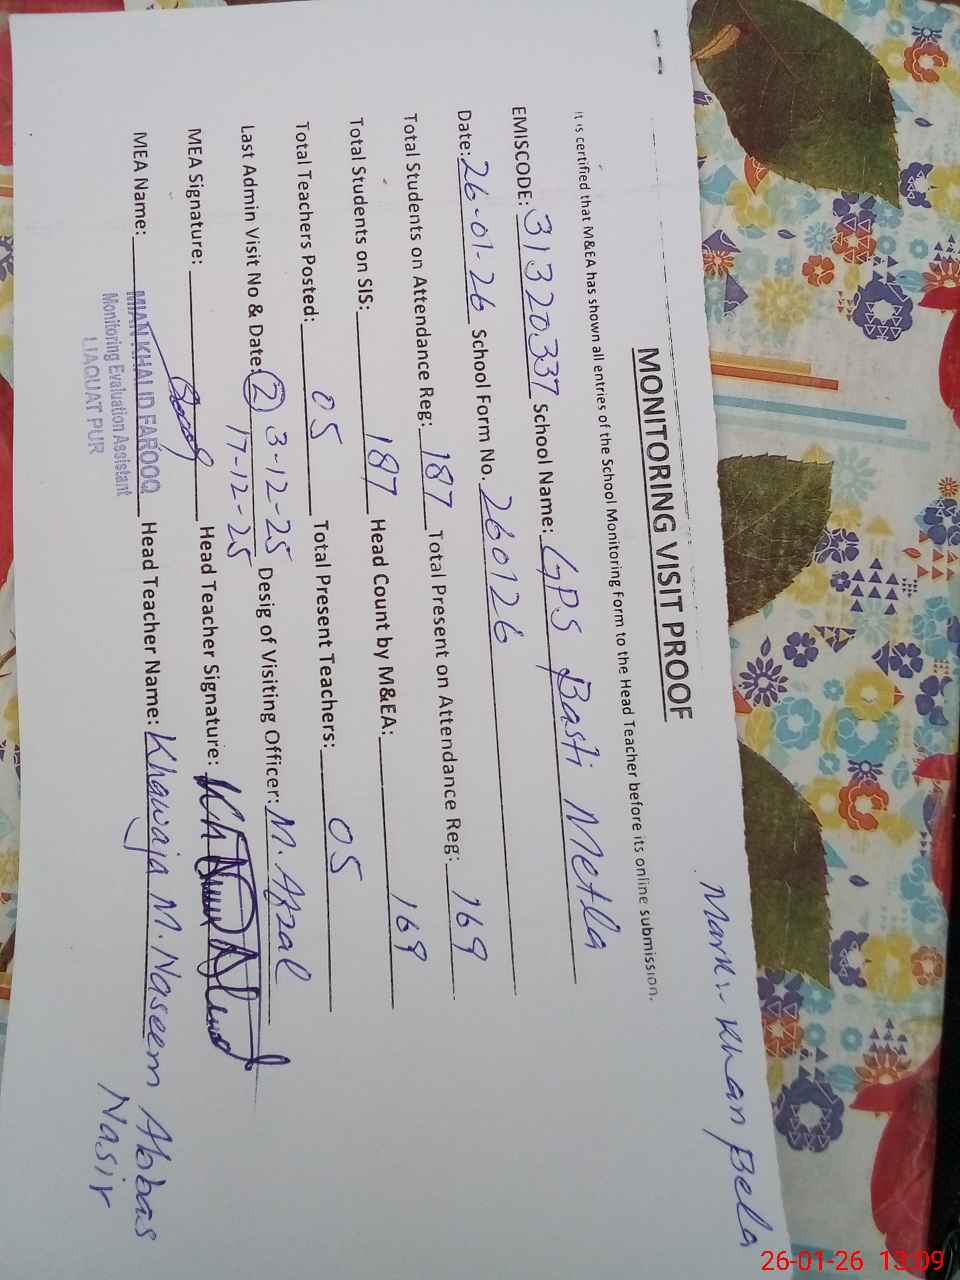 Khan Bela
MONITORING VISIT PROOF
It is certified that M&EA has shown all entries of the School Monitoring Form to the Head Teacher before its online submission.
EMISCODE: 31320337 School Name: GPS Basti Metla
Date: 26-01-26 School Form No. 260126
Total Students on Attendance Reg: 187 Total Present on Attendance Reg: 169
Total Students on SIS: 187 Head Count by M&EA: 169
Total Teachers Posted: 05 Total Present Teachers: 05
Last Admin Visit No & Date: (2) 3-12-25 Desig of Visiting Officer: M. Afzal
17-12-25
MEA Signature: Head Teacher Signature:
MEA Name: MIAN KHALID FAROOQ Head Teacher Name: Khawaja M. Naseem Abbas
Nasir
Monitoring Evaluation Assistant
LIAQUAT PUR
26-01-26 13:09